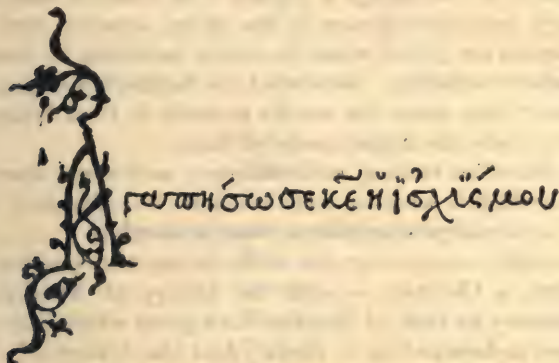 Αγαπήσω σε κ̅ε̅ ἡ ϊσχΐς μου